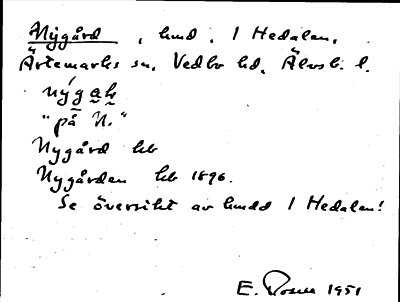 Nygård, hmd. 1 Hedalen,
Ärtemarks sn, Vedbo hd, Älvsb. l.
nýgaḱ
"på N."
Nygård hb
Nygården hb 1896.
Se översikt av hmdd 1 Hedalen!
E. Rosell 1951